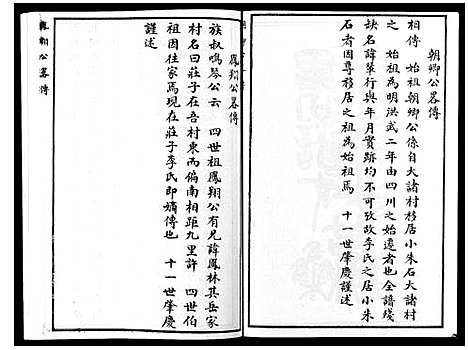 朝卿公畧傳
相傳 始祖朝卿公係自大諸村移居小朱石大諸村
之 始祖為明洪武二年由四川之始遷者也全譜殘
缺名諱輩行與年月實跡均不可攷故李氏之居小朱
石者因尊移居之祖為始祖焉 十一世肇慶謹述
鳳翔公畧傳
族叔鳴琴公云 四世祖鳳翔公有兄諱鳳林其岳家
村名曰莊子在吾村東而偏南相距九里許 四世伯
祖因住家焉現在莊子李氏即嫡傳也 十一世肇慶
謹述
鳳翔公畧傳